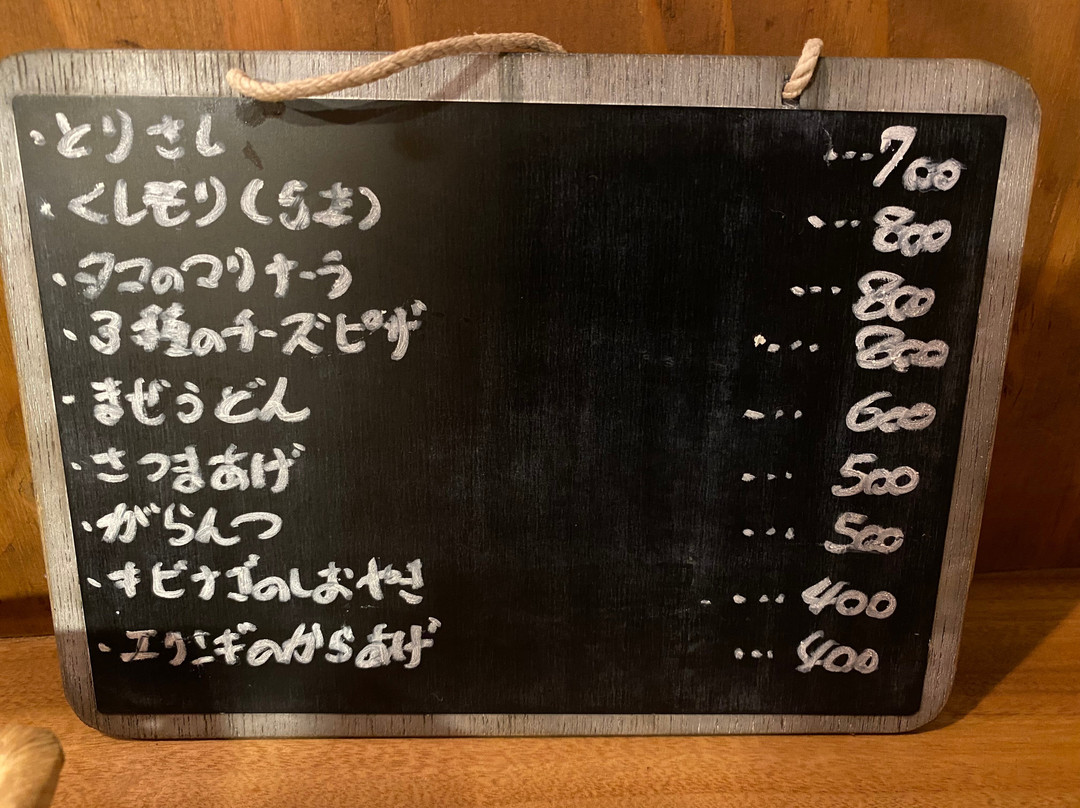 ・とりさし …700
・くしもり(5本) …800
・タコのマリナーラ …800
・3種のチーズピザ …800
・まぜうどん …600
・さつまあげ …500
・がらんつ …500
・キビナゴのしおやき …400
・エリンギのからあげ …400